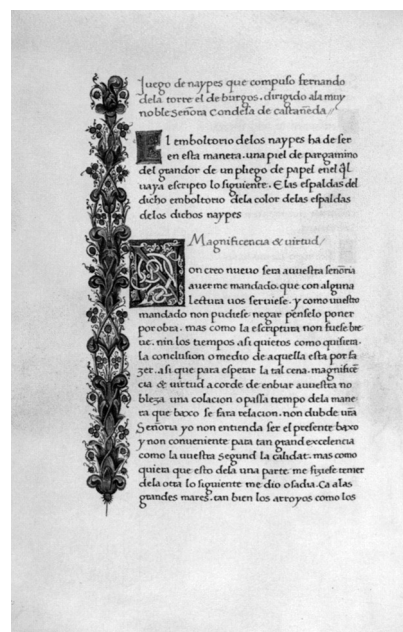 Juego de naypes que compuso fernando
dela torre el de burgos. dirigido ala muy
noble señora Condesa de castañeda
El emboltorio delos naypes ha de ser
en esta manera. una piel de pargamino
del grandor de un pliego de papel enel q̃l
vaya escripto lo siguiente. E las espaldas del
dicho emboltorio dela color delas espaldas
delos dichos naypes
Magnificencia & virtud
Non creo nuevo sera avuestra señoria
averme mandado. que con alguna
lectura vos serviese. y como vuestro
mandado non pudiese negar penselo poner
por obra. mas como la escriptura non fuese bre
ve. nin los tiempos asi quietos como quisiera.
la conclusion o medio de aquella esta por fa
zer. asi que para esperar la tal cena. magnificẽ
cia & virtud acorde de enbiar avuestra no
bleza una colacion o passa tiempo dela mane
ra que baxo se fara relacion. non dubde vr̃a
Señoria yo non entienda ser el presente baxo
y non conveniente para tan grand excelencia
como la vuestra segund la calidat. mas como
quiera que esto dela una parte me fiziese temer
dela otra lo siguiente me dio osadia. Ca alas
grandes mares. tan bien los arroyos como los